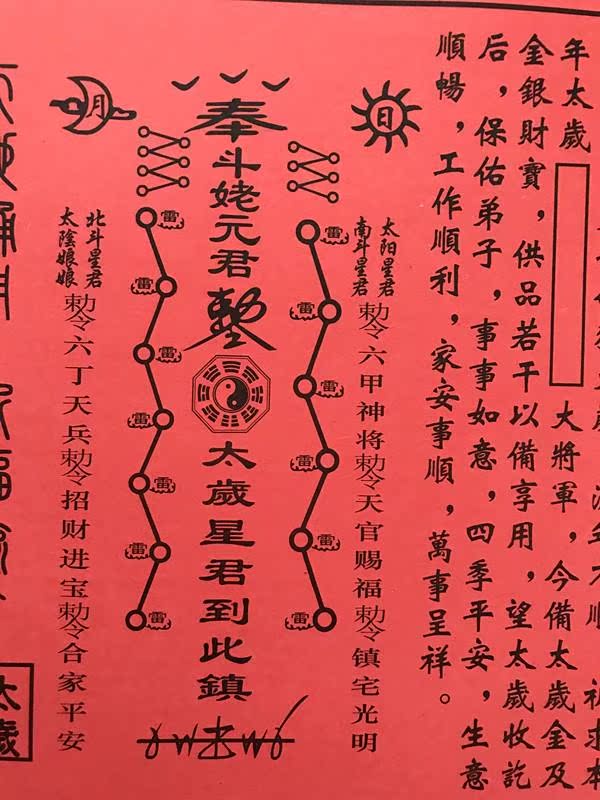 流年不順，祈求本
年太歲
大將軍，今備太歲金及
金銀財寶，供品若干以備享用，望太歲收訖
后，保佑弟子，事事如意，四季平安，生意
順暢，工作順利，家安事順，萬事呈祥。
日
太阳星君
南斗星君
勅令六甲神将勅令天官赐福勅令镇宅光明
雷
雷
雷
雷
雷
雷
奉斗姥元君
太歲星君到此鎮
雷
雷
雷
雷
雷
雷
雷
月
北斗星君
太陰娘娘
勅令六丁天兵勅令招财进宝勅令合家平安
太歲